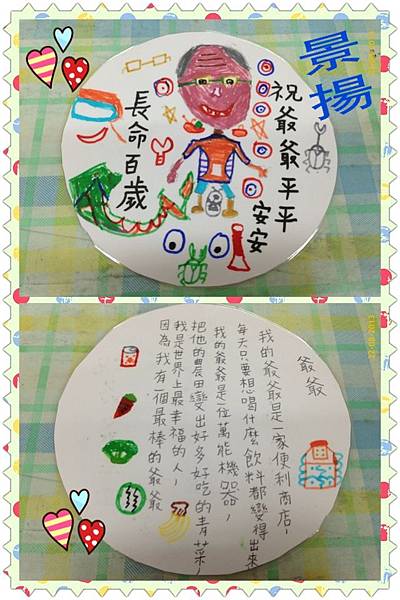 景揚
祝爺爺平平
安安
長命百歲
爺爺
我的爺爺是一家便利商店，
每天只要想喝什麼飲料都變得出來
我的爺爺是一位萬能機器，
把他的農田變出好多好吃的青菜，
我是世界上最幸福的人，
因為我有一個最棒的爺爺